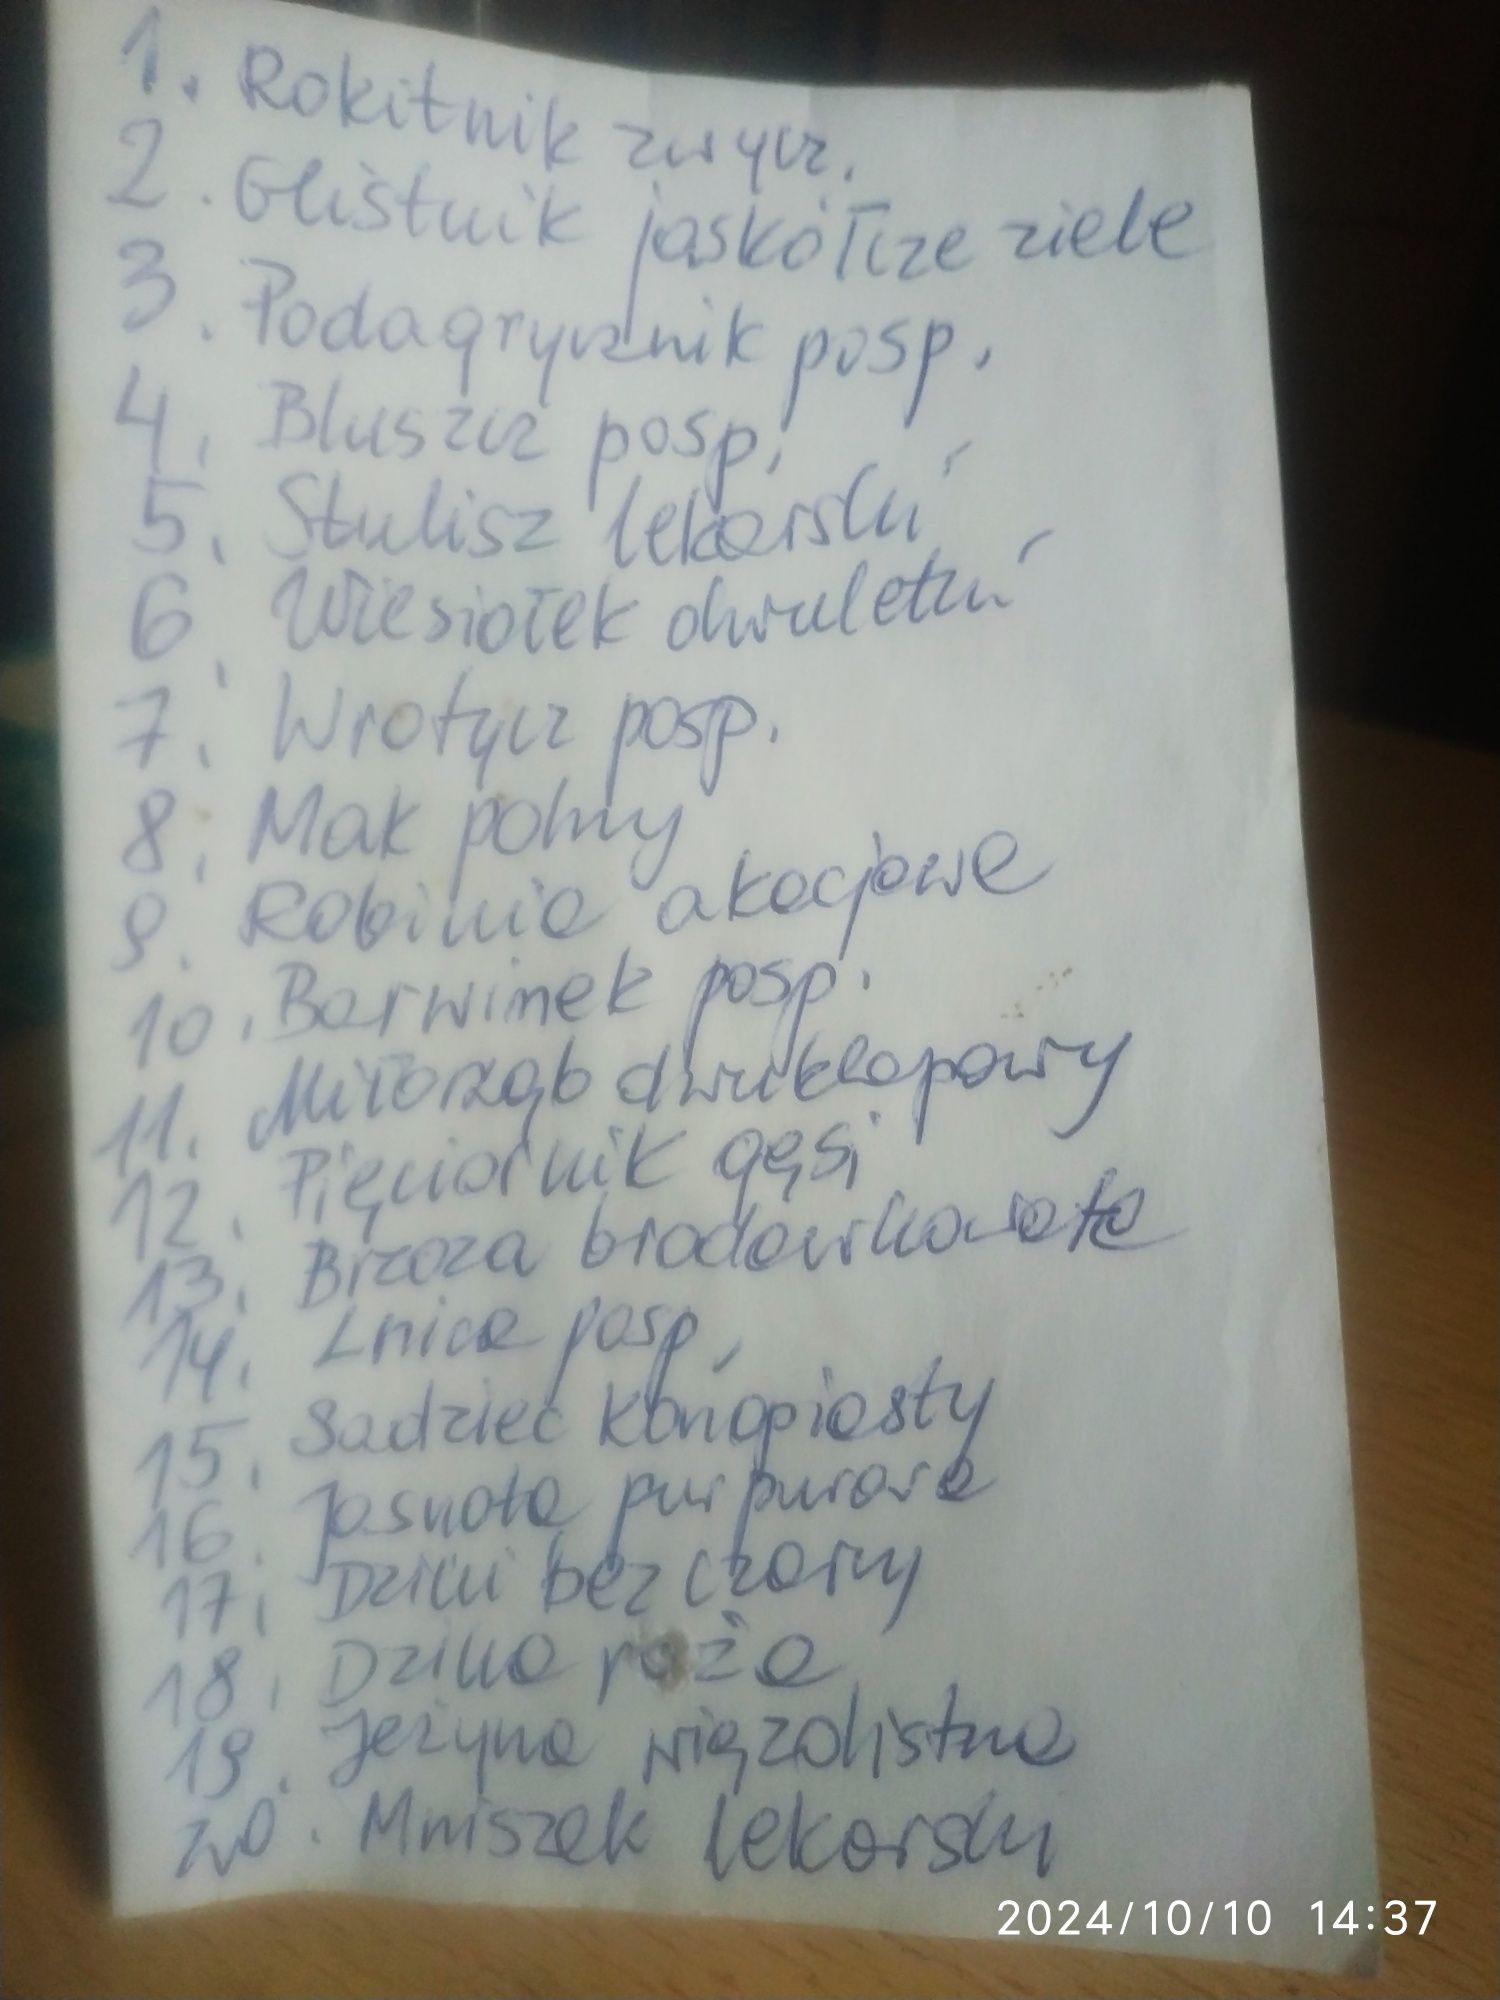 1. Rokitnik zwycz.
2. Glistnik jaskółcze ziele
3. Podagrycznik posp.
4. Bluszcz posp.
5. Stulisz lekarski
6. Wiesiołek dwuletni
7. Wrotycz posp.
8. Mak polny
9. Robinia akacjowa
10. Barwinek posp.
11. Miłorząb dwuklapowy
12. Pięciornik gęsi
13. Brzoza brodawkowata
14. Lnica posp.
15. Sadziec konopiasty
16. Jasnota purpurowa
17. Dziki bez czarny
18. Dzika róża
19. Jeżyna wiązolistna
20. Mniszek lekarski
2024/10/10 14:37